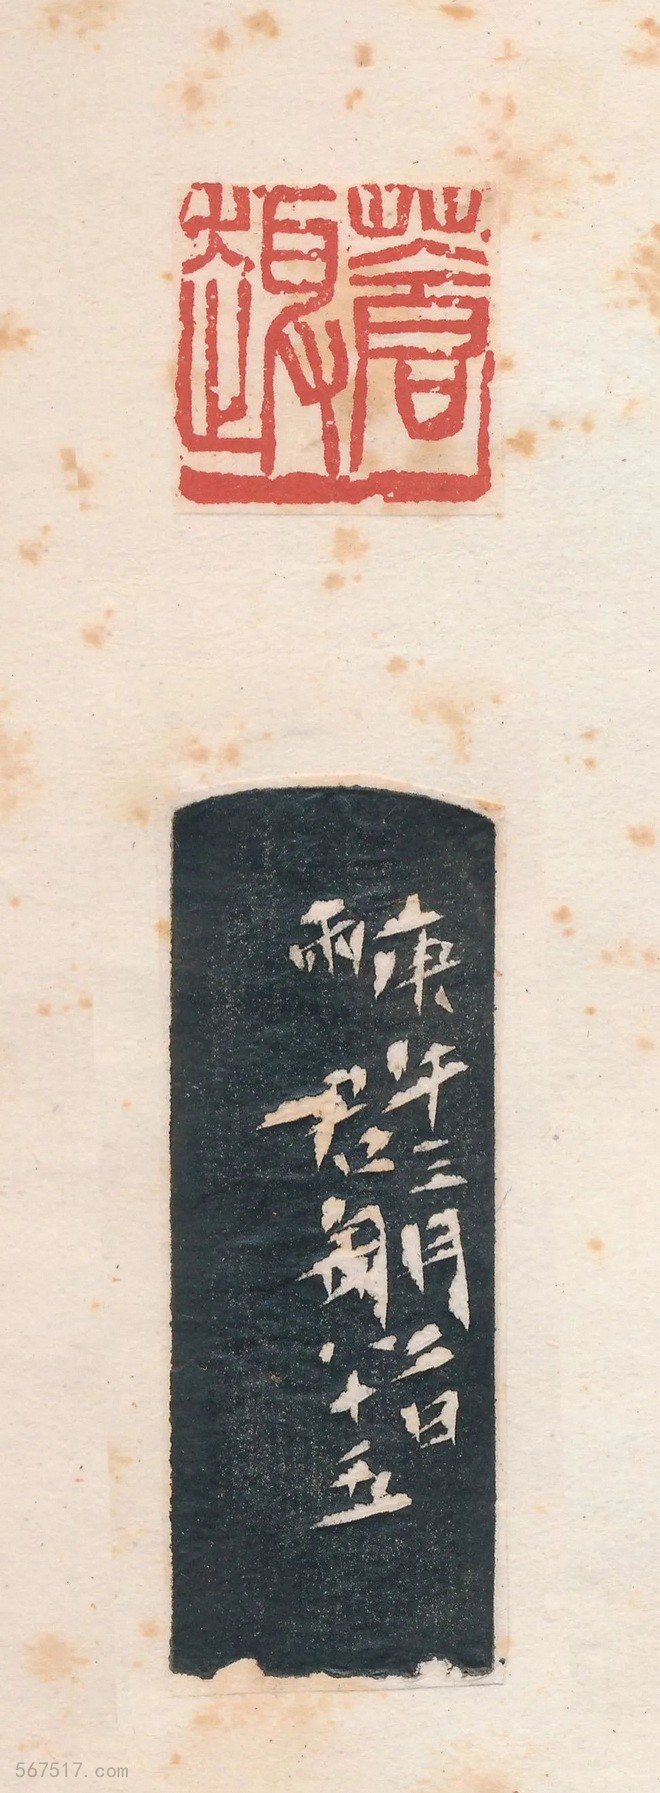 蒼
庚午三月日
雨 君匋八十五
567517.com